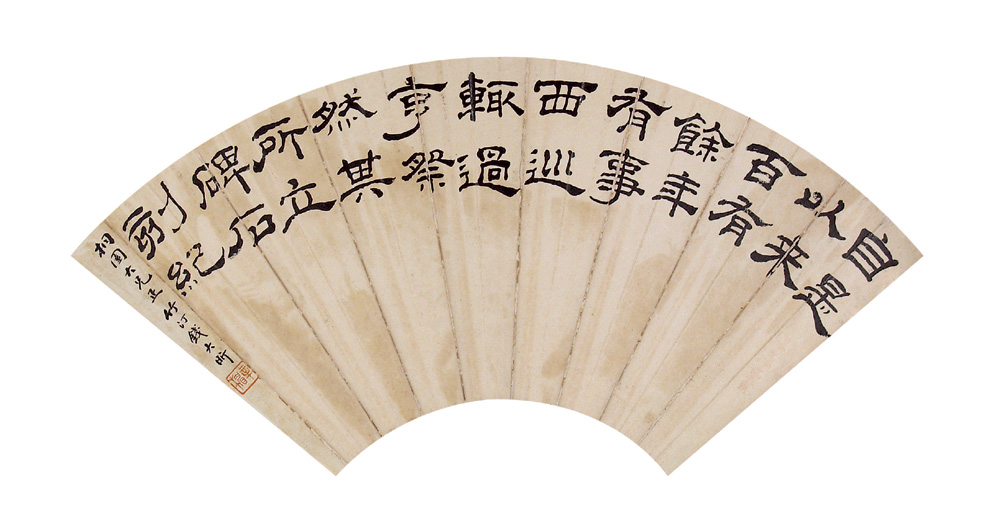 自是
以來
百有
餘年
有事
西巡
輒過
亨祭
然其
所立
碑石
刻紀
桐 大兄正 竹汀錢大昕